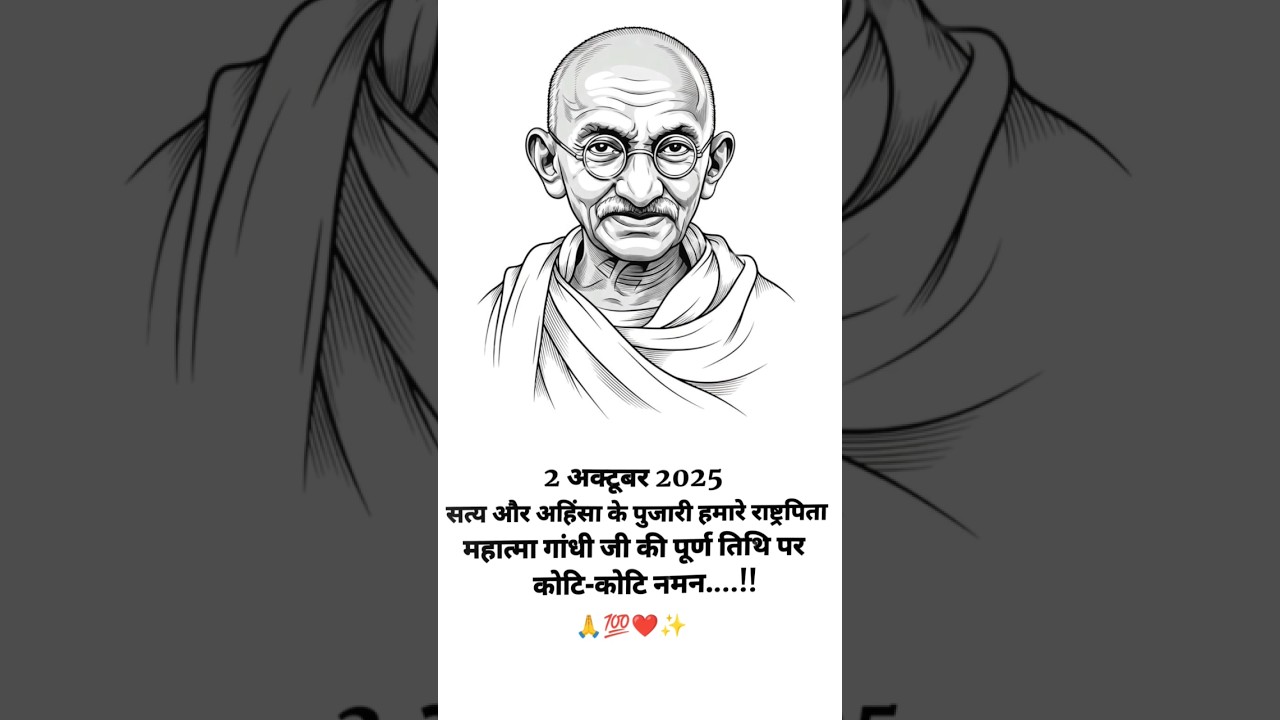 2 अक्टूबर 2025
सत्य और अहिंसा के पुजारी हमारे राष्ट्रपिता
महात्मा गांधी जी की पूर्ण तिथि पर
कोटि-कोटि नमन....!!
🙏💯❤️✨